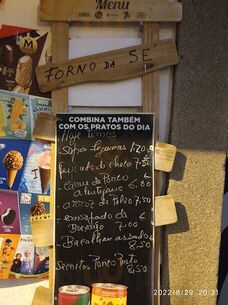 Menu
FORNO DA SÉ
COMBINA TAMBÉM
COM OS PRATOS DO DIA
Hoje Temos
Sopa Legumes 1.20
Feijoada de Choco 7.50
Carne de Porco
a alentejana 6.80
arroz de Polvo 7.50
ensopado de
Borrego 7.00
Bacalhau assado
8,50
Secretos Porco Preto
8,50
2022/8/29 20:31